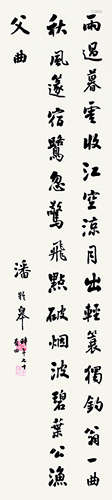 雨過暮雲收江空涼月出輕蓑獨釣翁一曲
秋風遂宿鷺忽驚飛點破烟波碧葉公漁
父曲
潘齡皋
時年七十